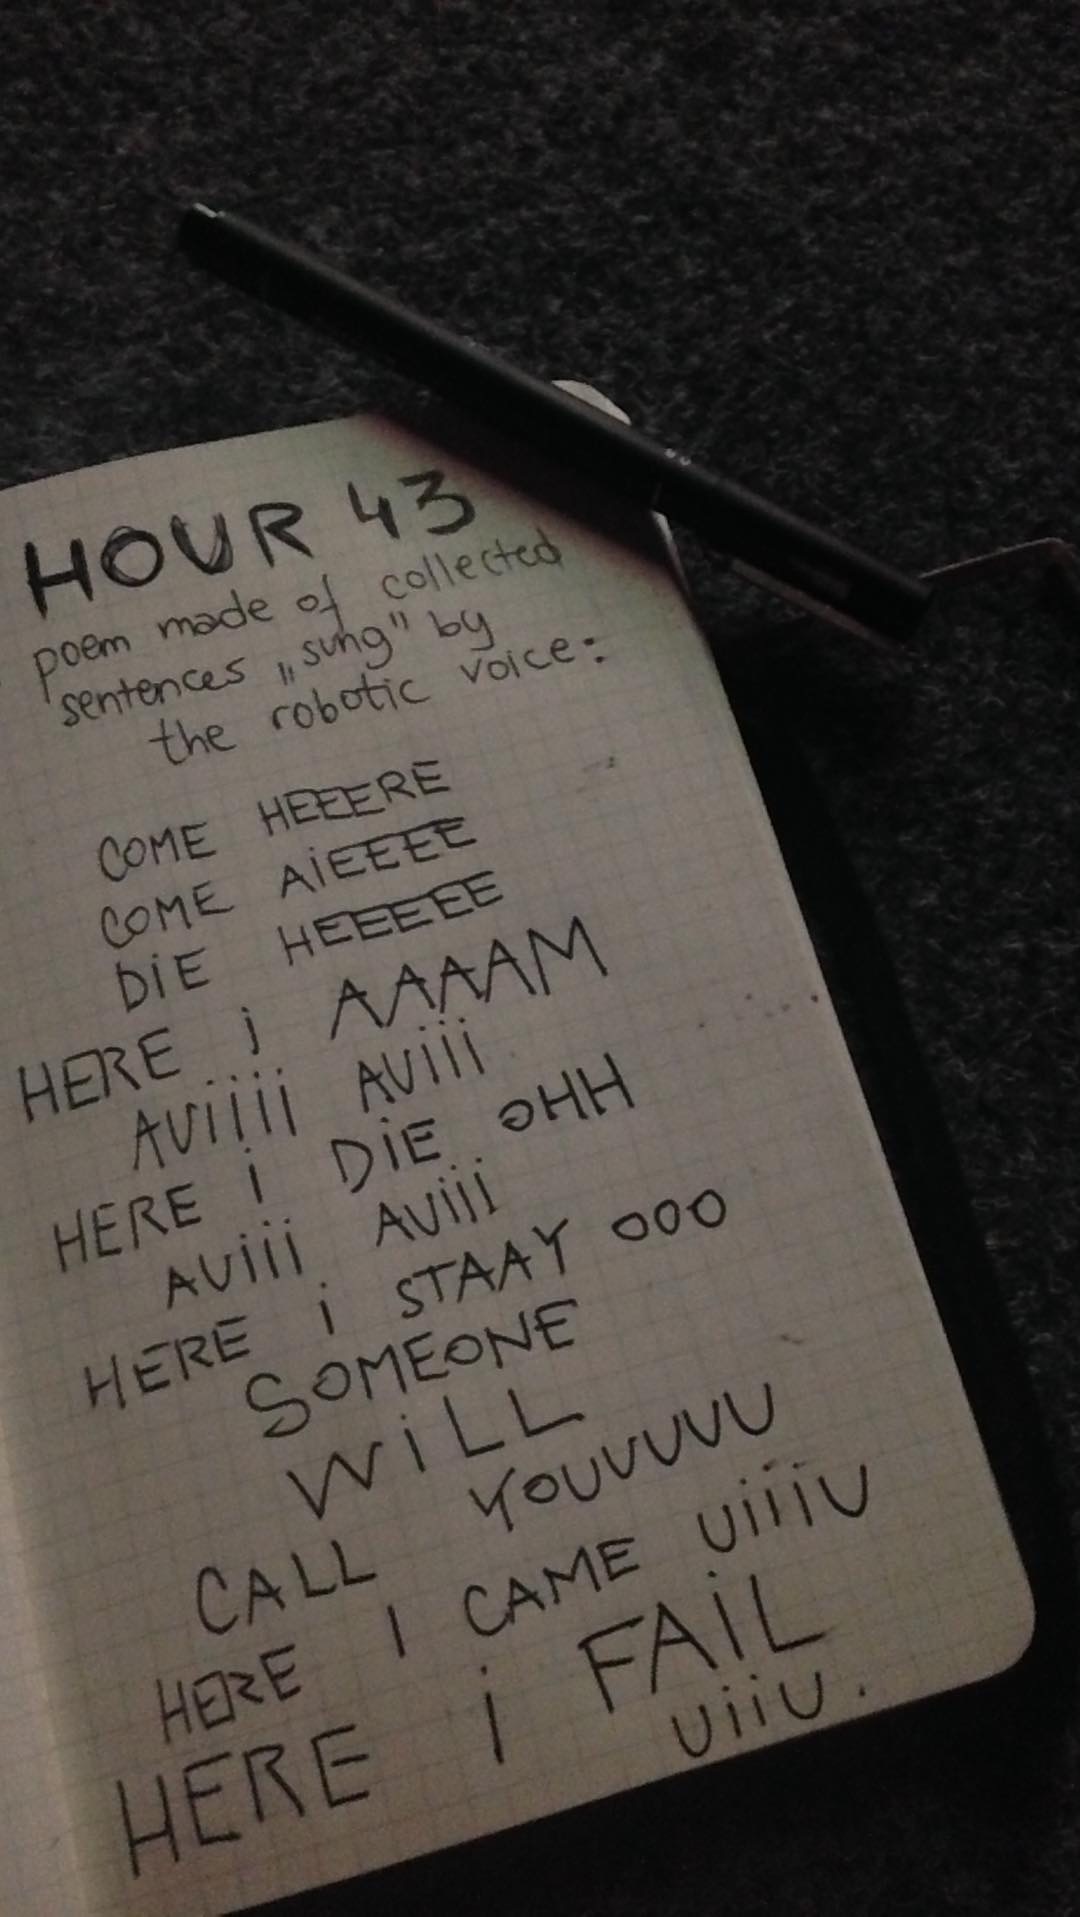 HOUR 43
poem made of collected
sentences „sung" by
the robotic voice:
COME HEEERE
COME AiEEEE
DiE HEEEEE
HERE i AAAAM
AUiiii AUiii
HERE i DiE OHH
AUiii AUiii
HERE i STAAY OOO
SOMEONE
WiLL
CALL YOUUUUU
HERE I CAME UiiiU
HERE i FAiL
UiiU.